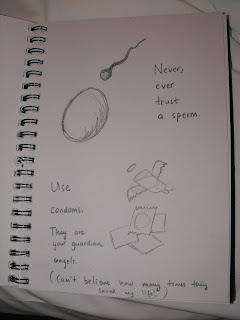 Never,
ever
trust
a sperm.
Use
condoms.
They are
your guardian
angels.
(Can't believe how many times they
saved my life!)